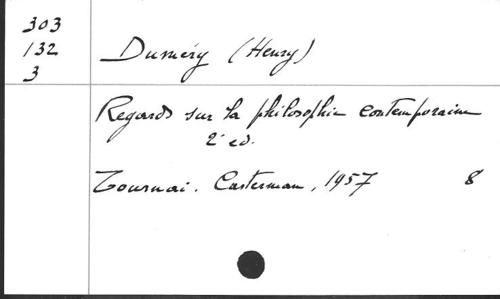 303
132
3
Duméry (Henry)
Regards sur la philosophie contemporaine
2e ed.
Tournai. Casterman, 1957 8